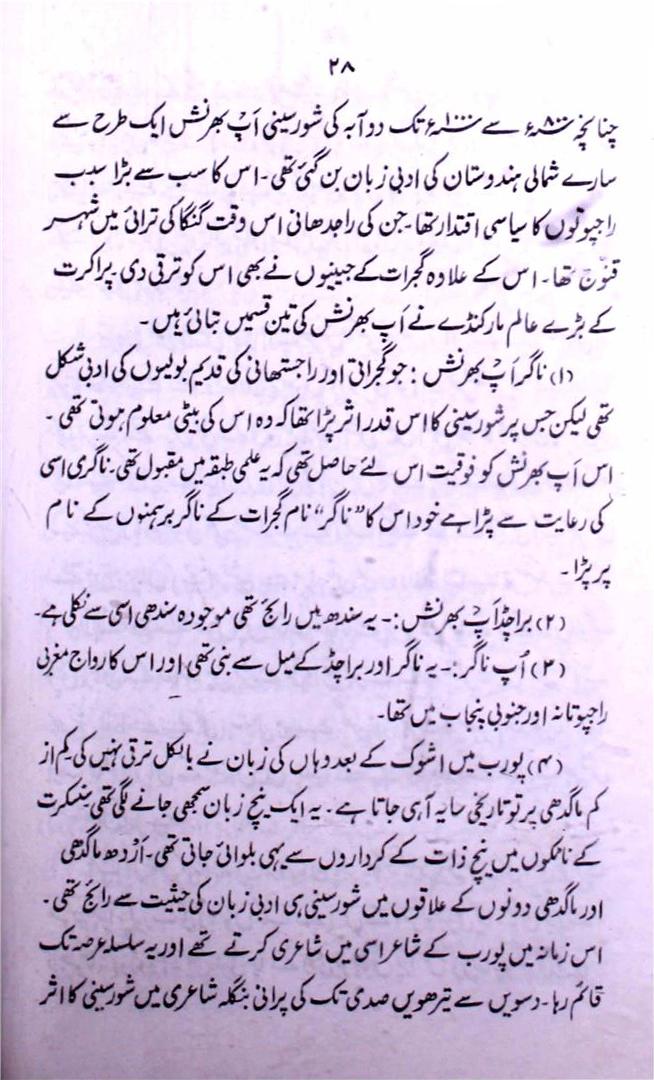 ۲۸
چنانچہ ۸۰۰ء سے ۱۰۰۰ء تک دوآبہ کی شورسینی اَپ بھرنش ایک طرح سے
سارے شمالی ہندوستان کی ادبی زبان بن گئی تھی۔ اس کا سب سے بڑا سبب
راجپوتوں کا سیاسی اقتدار تھا۔ جن کی راجدھانی اس وقت گنگا کی ترائی میں شہر
قنوّج تھا۔ اس کے علاوہ گجرات کے جینیوں نے بھی اس کو ترقی دی۔ پراکرت
کے بڑے عالم مارکنڈے نے اَپ بھرنش کی تین قسمیں بتائی ہیں۔
(۱) ناگر اَپ بھرنش : جو گجراتی اور راجستھانی کی قدیم بولیوں کی ادبی شکل
تھی لیکن جس پر شورسینی کا اس قدر اثر پڑا تھا کہ وہ اس کی بیٹی معلوم ہوتی تھی ۔
اس اَپ بھرنش کو فوقیت اس لئے حاصل تھی کہ یہ علمی طبقہ میں مقبول تھی۔ ناگری اسی
کی رعایت سے پڑا ہے خود اس کا “ناگر” نام گجرات کے ناگر برہمنوں کے نام
پر پڑا۔
(۲) براچڈ اَپ بھرنش :۔ یہ سندھ میں رائج تھی موجودہ سندھی اسی سے نکلی ہے۔
(۳) اُپ ناگر :۔ یہ ناگر اور براچڈ کے میل سے بنی تھی اور اس کا رواج مغربی
راجپوتانہ اور جنوبی پنجاب میں تھا۔
(۴) پورب میں اشوک کے بعد وہاں کی زبان نے بالکل ترقی نہیں کی۔ کم از
کم ماگدھی پر تو تاریخی سایہ آ ہی جاتا ہے۔ یہ ایک نیچ زبان سمجھی جانے لگی تھی سنسکرت
کے ناٹکوں میں نیچ ذات کے کرداروں سے یہی بلوائی جاتی تھی۔ اَرْدھ ماگدھی
اور ماگدھی دونوں کے علاقوں میں شورسینی ہی ادبی زبان کی حیثیت سے رائج تھی ۔
اس زمانہ میں پورب کے شاعر اسی میں شاعری کرتے تھے اور یہ سلسلہ عرصہ تک
قائم رہا۔ دسویں سے تیرھویں صدی تک کی پرانی بنگلہ شاعری میں شورسینی کا اثر